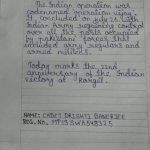 The Indian operation was
codenamed operation vijay.
It concluded on July 26 with
Indian Army regaining control
over all the posts occupied
by Pakistani forces that
included army regulars and
armed militants.
Today marks the 22nd
anniversary of the Indian
victory at Kargil.
NAME: CADET DRISHTI BANERJEE
REG. NO.